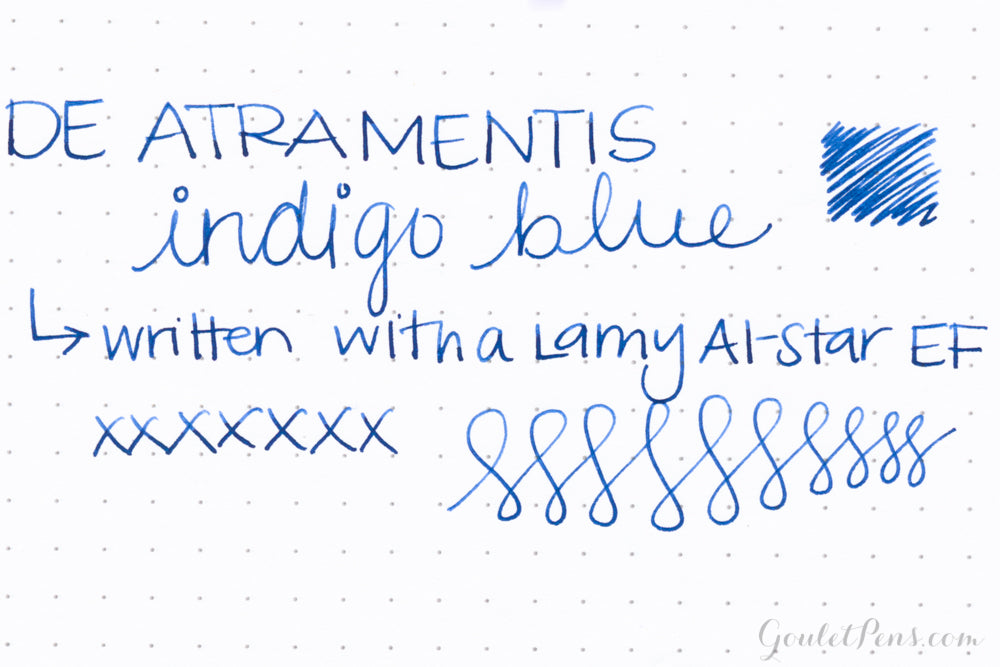 DE ATRAMENTIS
indigo blue
written with a Lamy Al-Star EF
xxxxxxx
GouletPens.com